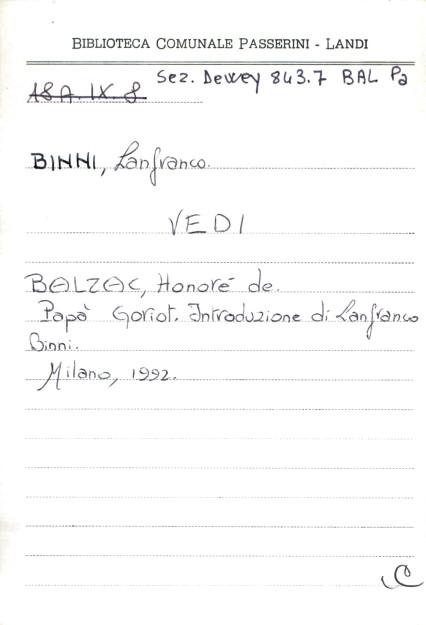 BIBLIOTECA COMUNALE PASSERINI - LANDI
Sez. Dewey 843.7 BAL Pa
18A.IX.8
BINNI, Lanfranco.
VEDI
BALZAC, Honoré de.
Papà Goriot. Introduzione di Lanfranco
Binni.
Milano, 1992.